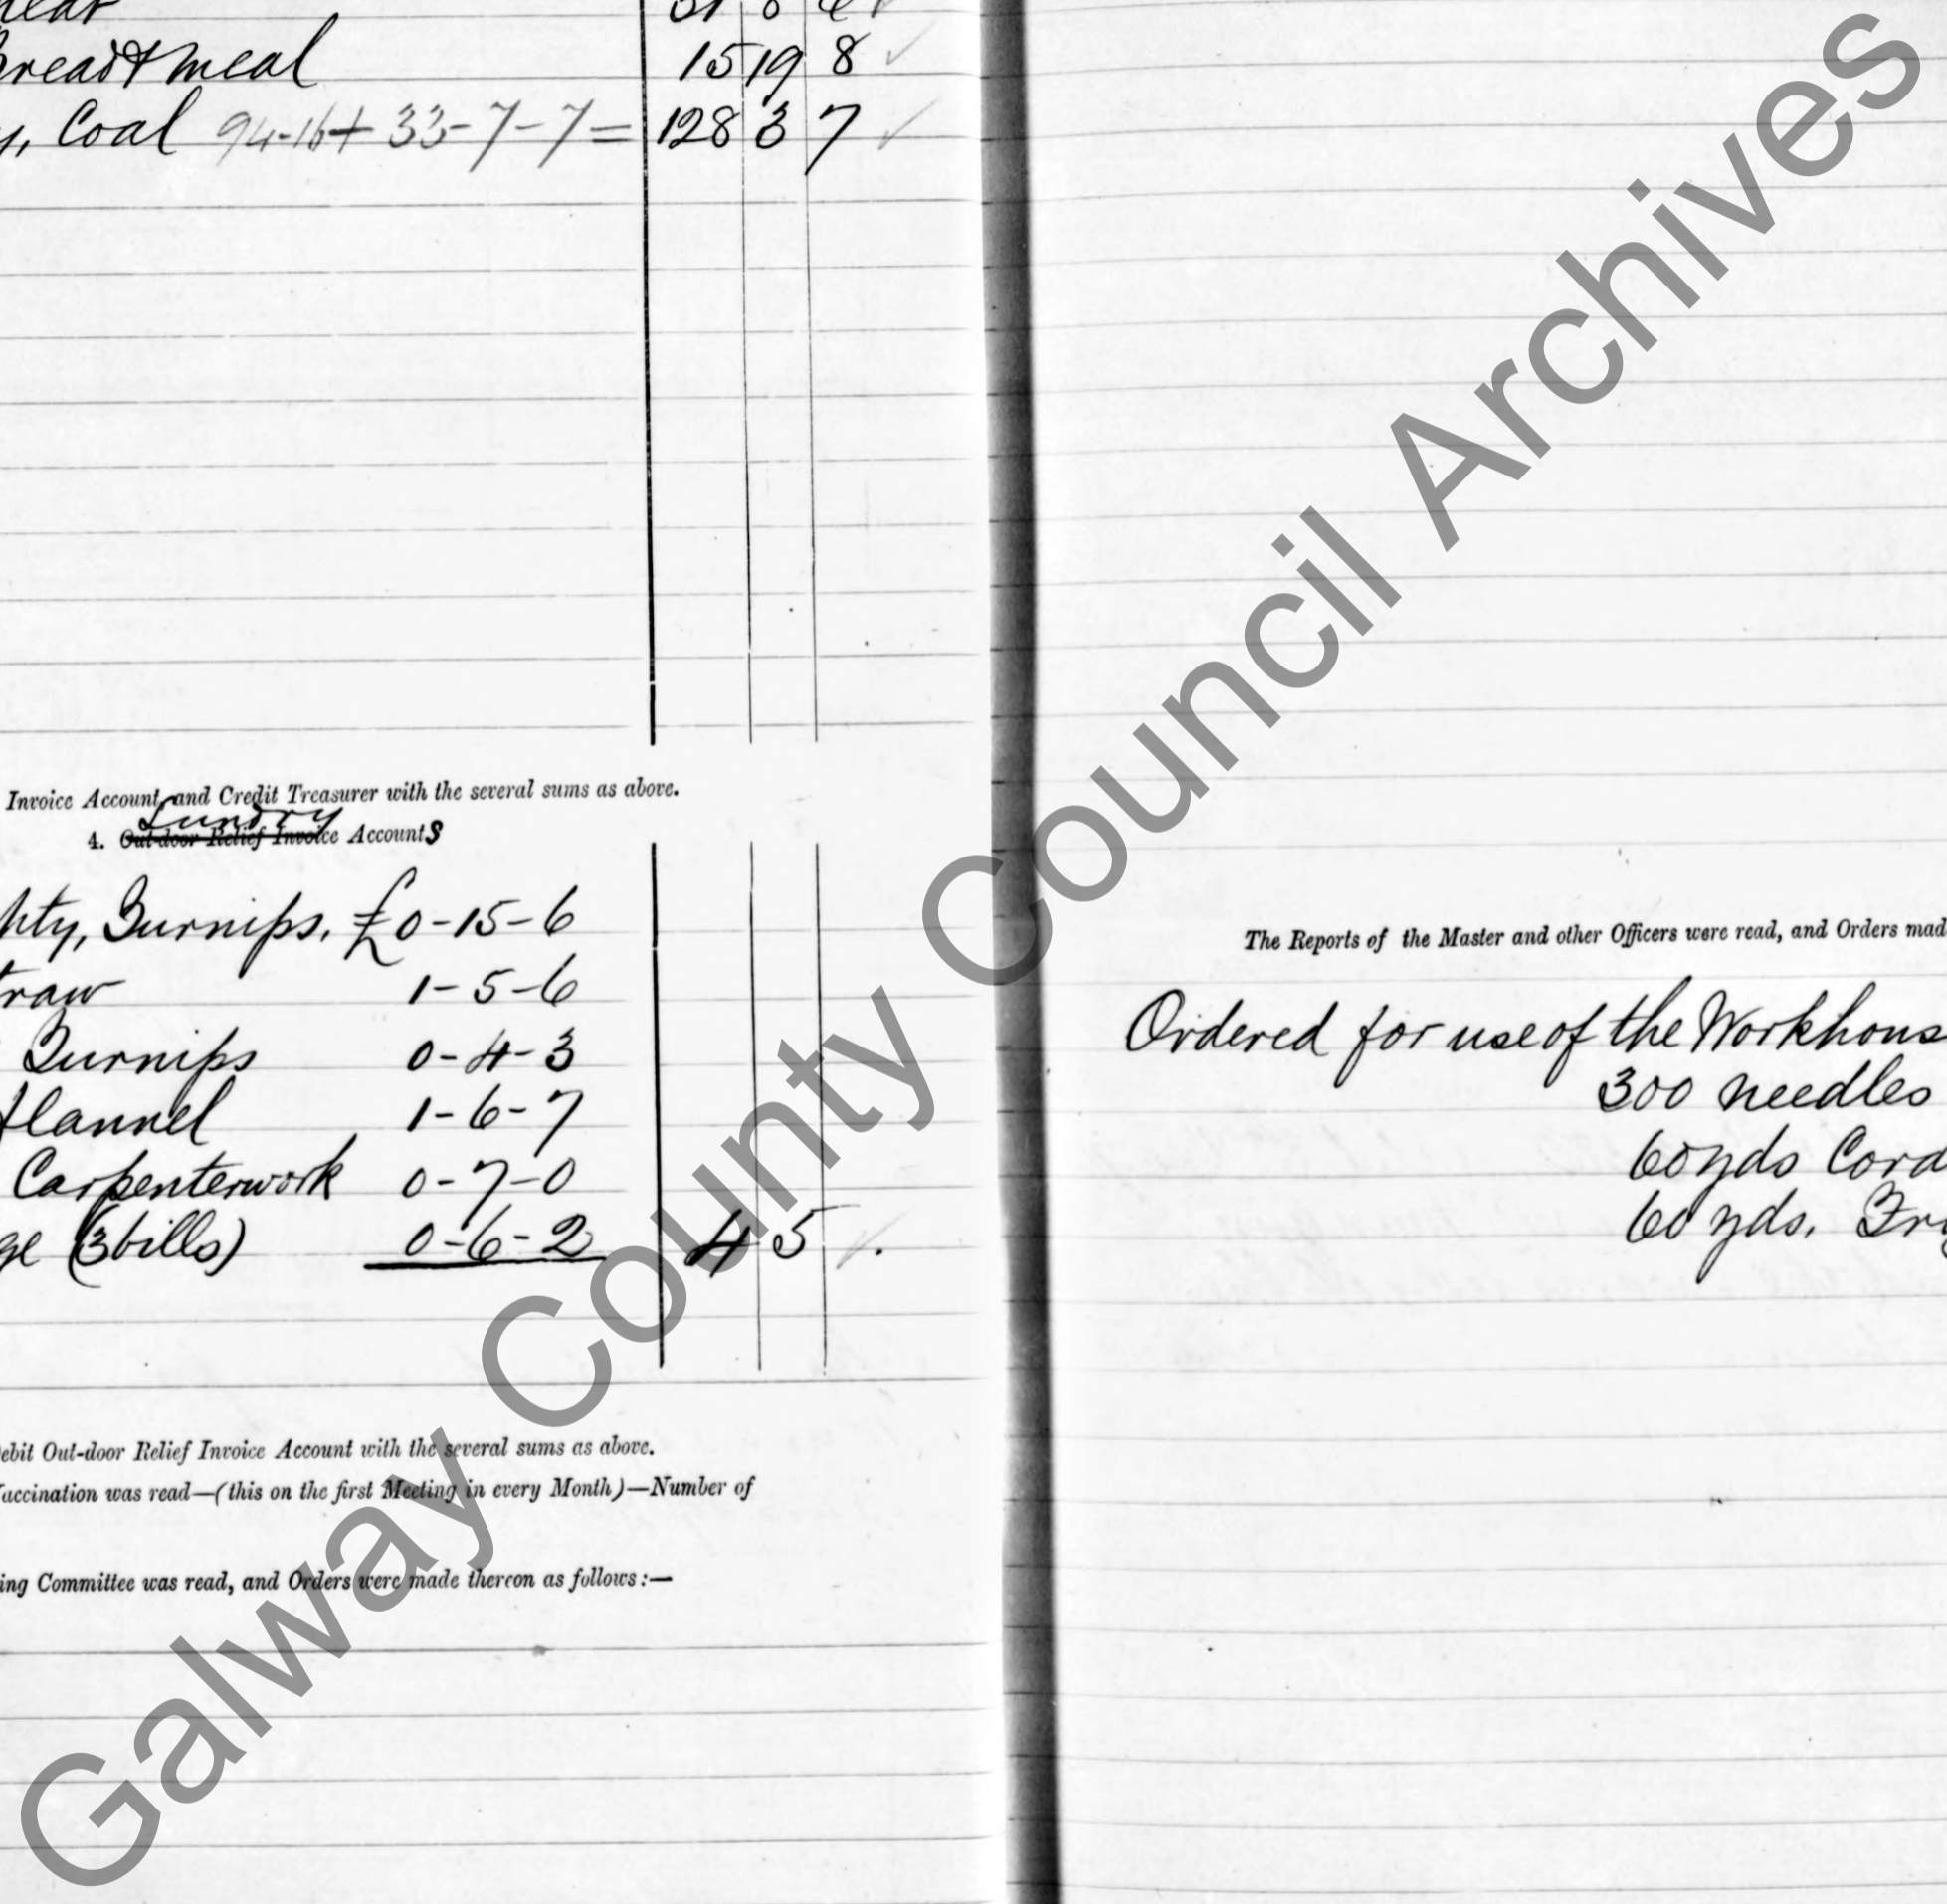 15 19 8
y, Coal 94-16+ 33-7-7= 128 3 7
Invoice Account, and Credit Treasurer with the several sums as above.
Sundry
4. Out-door Relief Invoice Accounts
hty, Turnips, £0-15-6
raw 1-5-6
Turnips 0-4-3
flannel 1-6-7
Carpenterwork 0-7-0
ge (3 bills) 0-6-2 4 5
ebit Out-door Relief Invoice Account with the several sums as above.
accination was read—(this on the first Meeting in every Month)—Number of
ing Committee was read, and Orders were made thereon as follows:—
The Reports of the Master and other Officers were read, and Orders mad
Ordered for use of the Workhous
300 needles
60 yds Cord
60 yds.
Galway County Council Archives